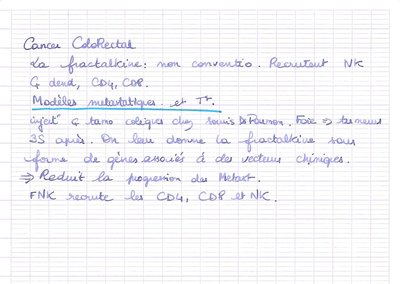 Cancer ColoRectal
La fractalkine : non conventio. Recrutent NK
C dend, CD4, CD8.
Modèles metastatiques et TT.
inject° C tumo coliques chez souris → Poumon. Foie → tumeurs
3S après. On leur donne la fractalkine sous
forme de gènes associés à des vecteurs chimiques.
⇒ Reduit la progression des Metast.
FNK recrute les CD4, CD8 et NK.